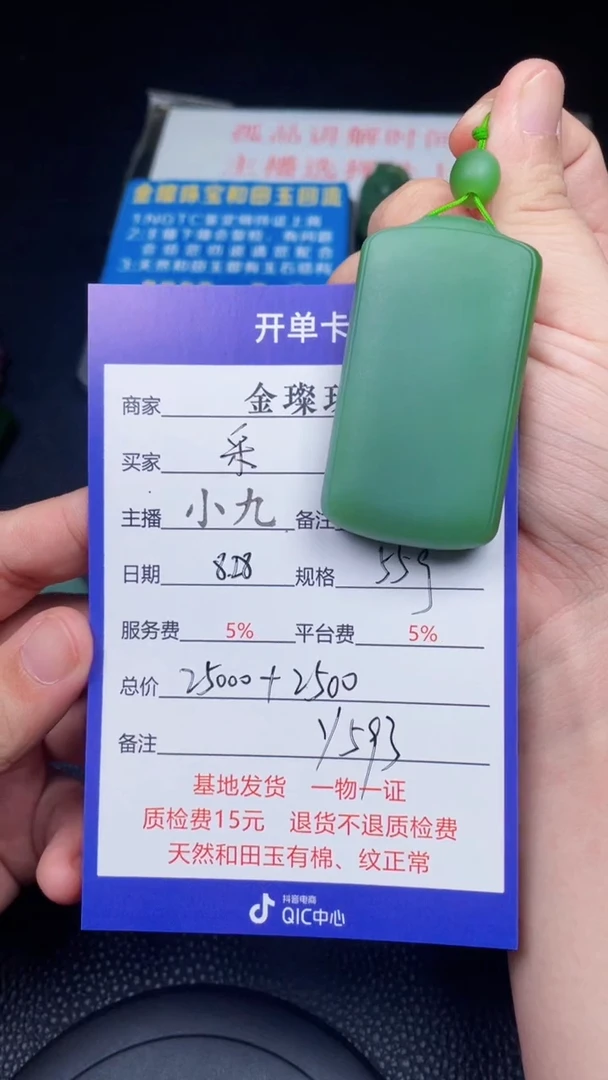 孤品讲解时间
金璨珠宝和田玉回流
开单卡
商家 金璨
买家 采
主播 小九 备注
日期 8.28 规格 55g
服务费 5% 平台费 5%
总价 25000+2500
备注 1/593
基地发货 一物一证
质检费15元 退货不退质检费
天然和田玉有棉、纹正常
抖音电商
QIC中心